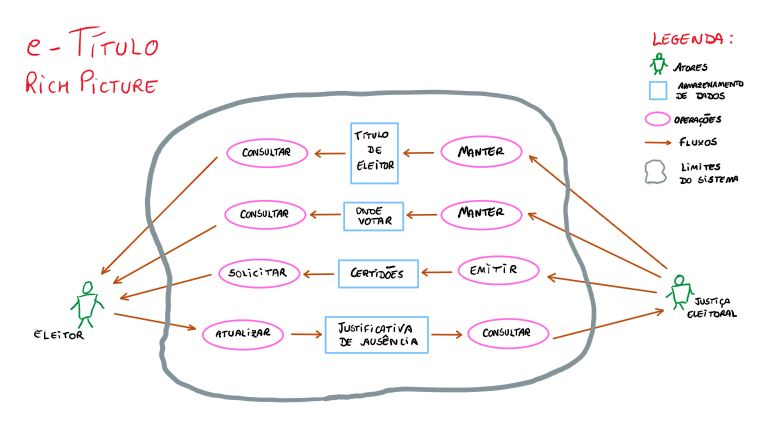 e-Título
Rich Picture
LEGENDA:
ATORES
ARMAZENAMENTO
DE DADOS
OPERAÇÕES
FLUXOS
LIMITES
DO SISTEMA
CONSULTAR
TÍTULO
DE
ELEITOR
MANTER
CONSULTAR
ONDE
VOTAR
MANTER
SOLICITAR
CERTIDÕES
EMITIR
ATUALIZAR
JUSTIFICATIVA
DE AUSÊNCIA
CONSULTAR
ELEITOR
JUSTIÇA
ELEITORAL